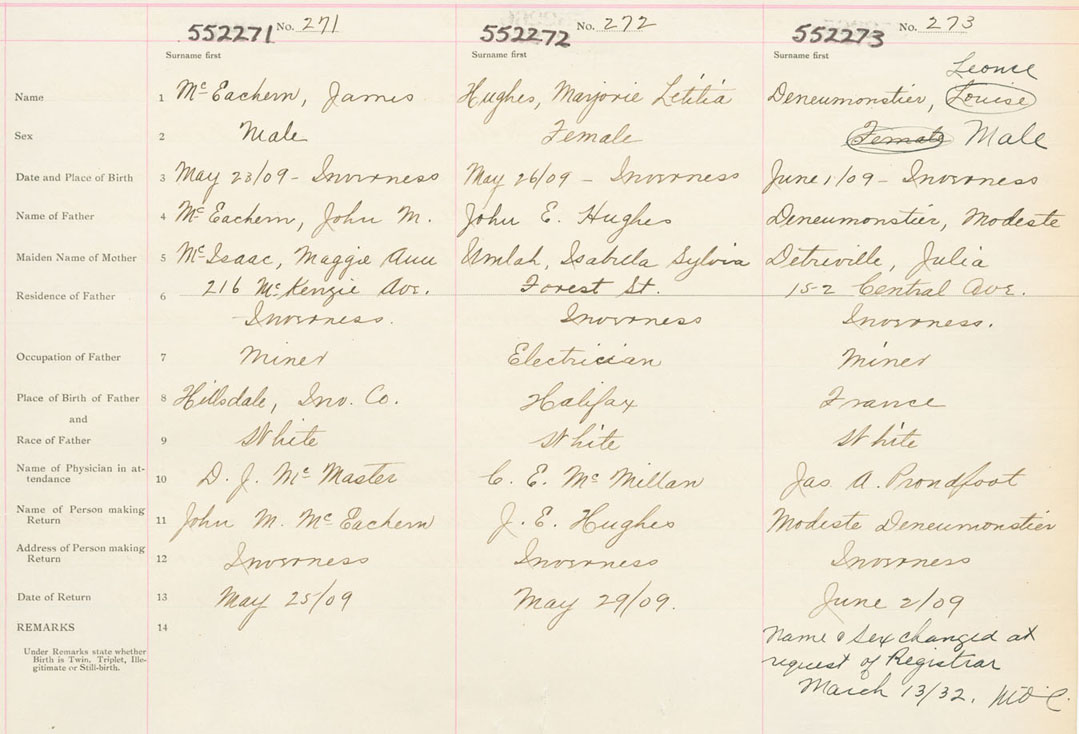 552271 No. 271 552272 No. 272 552273 No. 273
Surname first Surname first Surname first
Leonce
Name 1 McEachern, James Hughes, Marjorie Letitia Deneumonstier, Louise
Sex 2 Male Female Female Male
Date and Place of Birth 3 May 23/09 - Inverness May 26/09 - Inverness June 1/09 - Inverness
Name of Father 4 McEachern, John M. John E. Hughes Deneumonstier, Modeste
Maiden Name of Mother 5 McIsaac, Maggie Ann Umlah, Isabella Sylvia Detrieville, Julia
Residence of Father 6 216 McKenzie Ave. Forest St. 152 Central Ave.
Inverness. Inverness Inverness.
Occupation of Father 7 Miner Electrician Miner
Place of Birth of Father 8 Hillsdale, Inv. Co. Halifax France
and
Race of Father 9 White White White
Name of Physician in at-
tendance 10 D. J. McMaster C. E. McMillan Jas A. Prondfoot
Name of Person making
Return 11 John M. McEachern J. E. Hughes Modeste Deneumonstier
Address of Person making
Return 12 Inverness Inverness Inverness
Date of Return 13 May 25/09 May 29/09. June 2/09
REMARKS 14
Under Remarks state whether
Birth is Twin, Triplet, Ille-
gitimate or Still-birth.
Name & Sex changed at
request of Registrar
March 13/32.